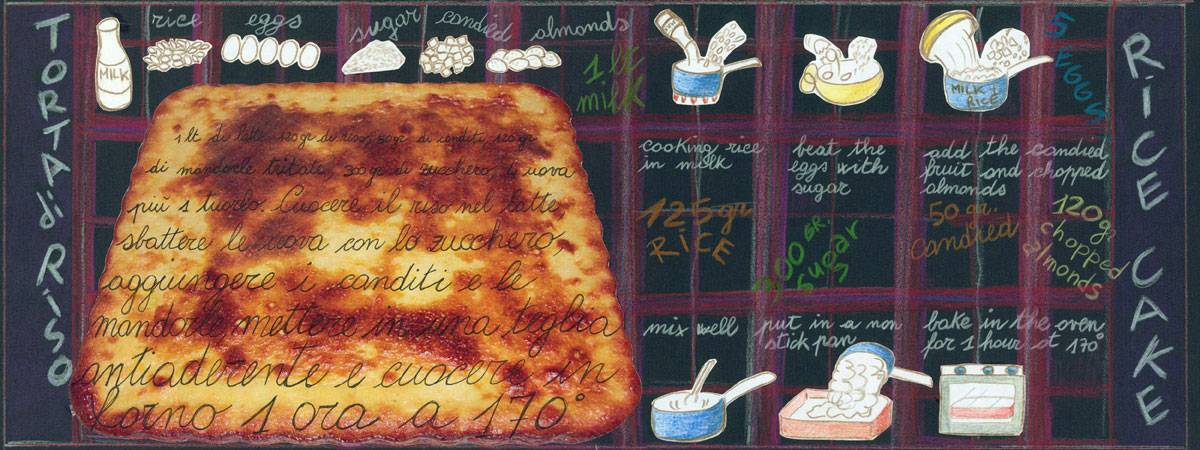 TORTA di RISO
rice
eggs
sugar
candied
almonds
MILK
1 lt
milk
MILK +
RICE
5
EGGS
1 lt di latte, 120gr di riso, 50gr di canditi, 120gr
di mandorle tritate, 300gr di zucchero, 4 uova
più 1 tuorlo. Cuocere il riso nel latte,
sbattere le uova con lo zucchero,
aggiungere i canditi e le
mandorle, mettere in una teglia
antiaderente e cuocere in
forno 1 ora a 170°
cooking rice
in milk
beat the
eggs with
sugar
add the candied
fruit and chopped
almonds
125gr
RICE
300 GR.
sugar
50 gr.
candied
120gr
chopped
almonds
mix well
put in a non
stick pan
bake in the oven
for 1 hour at 170°
RICE CAKE